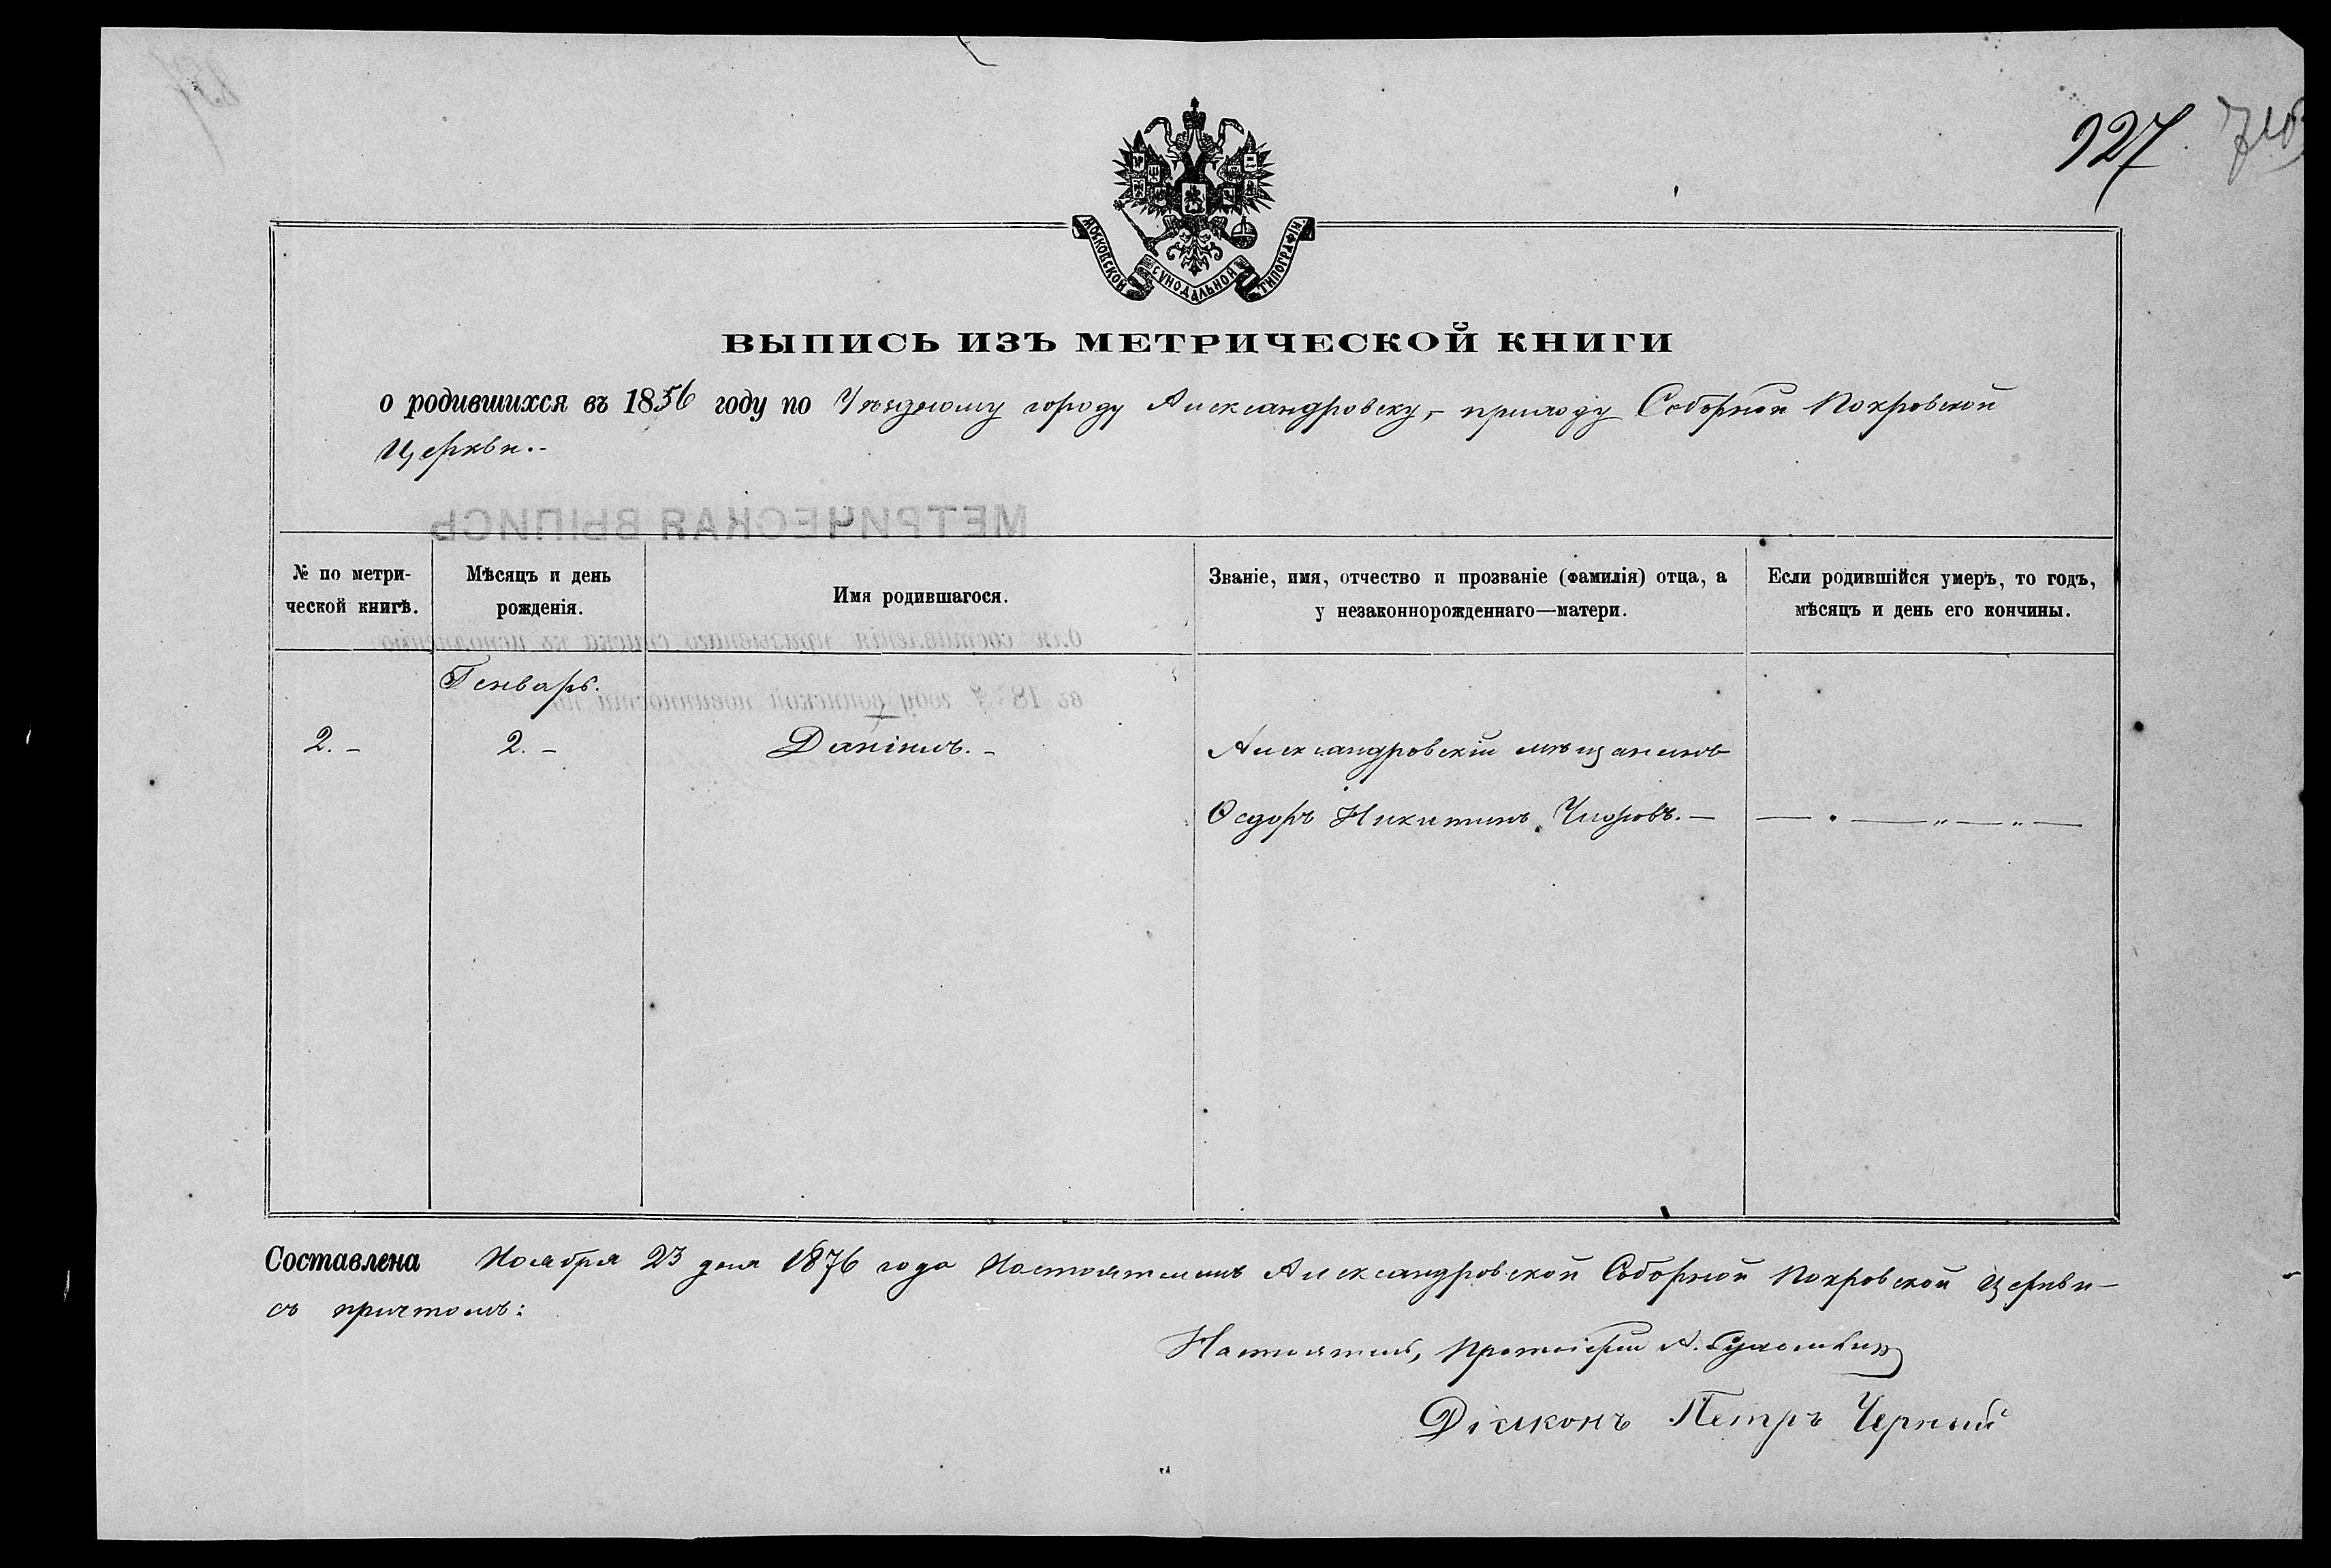 927.
МОСКОВСКОЙ СѴНОДАЛЬНОЙ ТИПОГРАФІИ.
ВЫПИСЬ ИЗЪ МЕТРИЧЕСКОЙ КНИГИ
о родившихся въ 1856 году по Уѣздному городу Александровску, – приходу Соборной Покровской
Церкви.-
МЕТРИЧЕСКАЯ ВЫПИСЬ
№ по метри-
ческой книгѣ.
Мѣсяцъ и день
рожденія.
Имя родившагося.
Званіе, имя, отчество и прозваніе (фамилія) отца, а
у незаконнорожденнаго—матери.
Если родившійся умеръ, то годъ,
мѣсяцъ и день его кончины.
для составленія призывнаго списка къ исполненію
въ 187 году воинской повинности по
Генварь.
2. – 2. – Даніилъ. – Александровскій мѣщанинъ
Ѳедоръ Никитинъ – — „ — „ — „ —
Составлена Ноября 23 дня 1876 года Настоятелемъ Александровской Соборной Покровской Церкви –
съ причтомъ:
Настоятель, Протоіерей А.
Діаконъ Петръ Черный